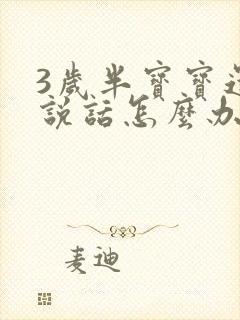 3歲半寶寶還
說話怎麼办
麦迪